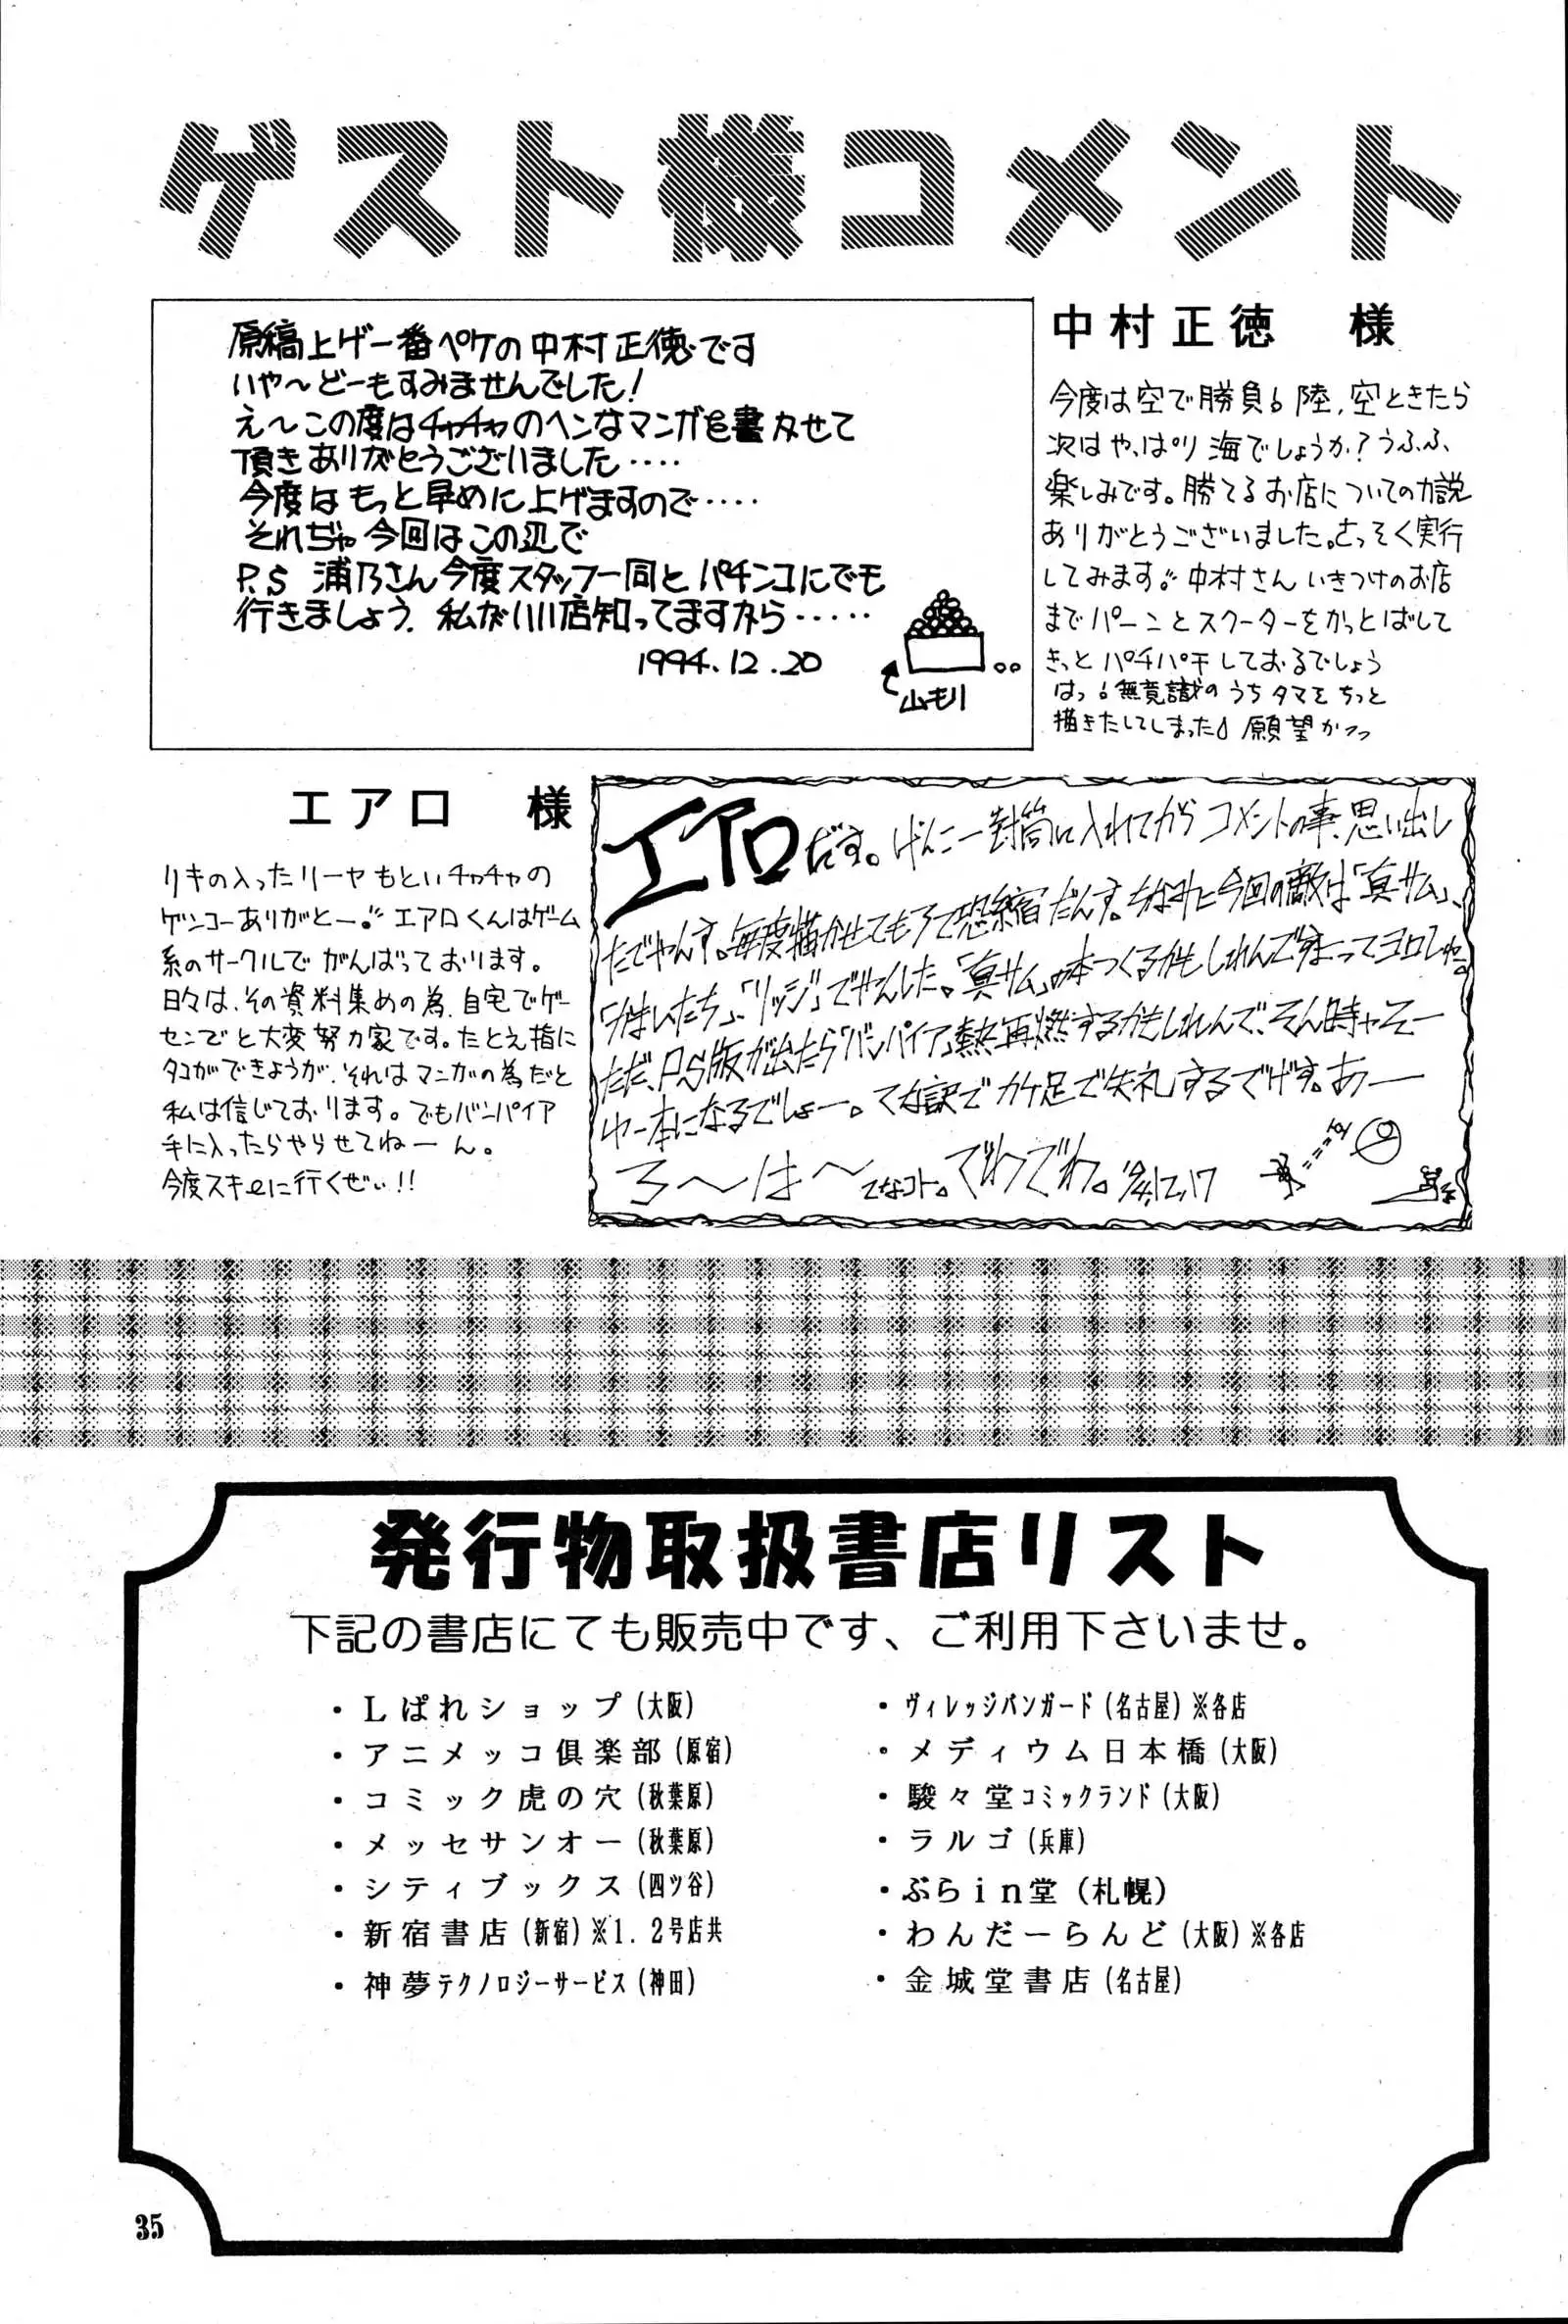 ゲスト様コメント
原稿上げ一番ペケの中村正徳です
いや〜どーもすみませんでした!
え〜この度はチャチャのヘンなマンガを書かせて
頂きありがとうございました‥‥
今度はもっと早めに上げますので‥‥
それぢゃ今回はこの辺で
P.S 浦乃さん今度スタッフ一同とパチンコにでも
行きましょう. 私がいい店知ってますから‥‥‥
1994.12.20
山もり
中村正徳 様
今度は空で勝負。陸、空ときたら
次はやっぱり海でしょうか?うふふ
楽しみです。勝てるお店についての力説
ありがとうございました。さっそく実行
してみます。中村さんいきつけのお店
までパーンとスクーターをかっとばして
きっとパチパチしておるでしょう
はっ!無意識のうちタマをちっと
描きたしてしまった 願望かっっ
エアロ 様
リキの入ったリーヤもといチャチャの
ゲンコーありがとー。エアロくんはゲーム
系のサークルでがんばっております。
日々は、その資料集めの為、自宅でゲー
センでと大変努力家です。たとえ指に
タコができょうが、それはマンガの為だと
私は信じております。でもバンパイア
手に入ったらやらせてねーん。
今度スキーに行くぜぃ!!
エアロだす。げんこー封筒に入れてから コメントの事、思い出し
たでやんす。毎度描かせてもろて恐縮だんす。ちなみに今回の敵は「真サム」、
「リッジ」でやんした。「真サム」の本つくるかもしれんですよってヨロシャ。
ただ、P.S版が出たら「バンパイア」熱再燃するかもしれんで、そん時ャそー
ゆー本になるでしょー。てな訳でカケ足で失礼するでげす。あー
ろ〜は〜てなコト。でわでわ。'94,12,17
発行物取扱書店リスト
下記の書店にても販売中です、ご利用下さいませ。
・Lぱれショップ(大阪)
・アニメッコ倶楽部(原宿)
・コミック虎の穴(秋葉原)
・メッセサンオー(秋葉原)
・シティブックス(四ツ谷)
・新宿書店(新宿)※1.2号店共
・神夢テクノロジーサービス(神田)
・ヴィレッジバンガード(名古屋)※各店
・メディウム日本橋(大阪)
・駿々堂コミックランド(大阪)
・ラルゴ(兵庫)
・ぶらin堂(札幌)
・わんだーらんど(大阪)※各店
・金城堂書店(名古屋)
35